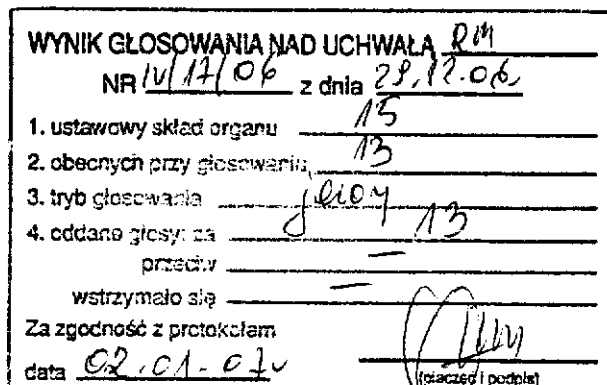 WYNIK GŁOSOWANIA NAD UCHWAŁĄ RM
NR IV/17/06 z dnia 29.12.06
1. ustawowy skład organu 15
2. obecnych przy głosowaniu 13
3. tryb głosowania jawny
4. oddano głosy: za 13
przeciw —
wstrzymało się —
Za zgodność z protokołem
data 02.01.07
(pieczęć i podpis)